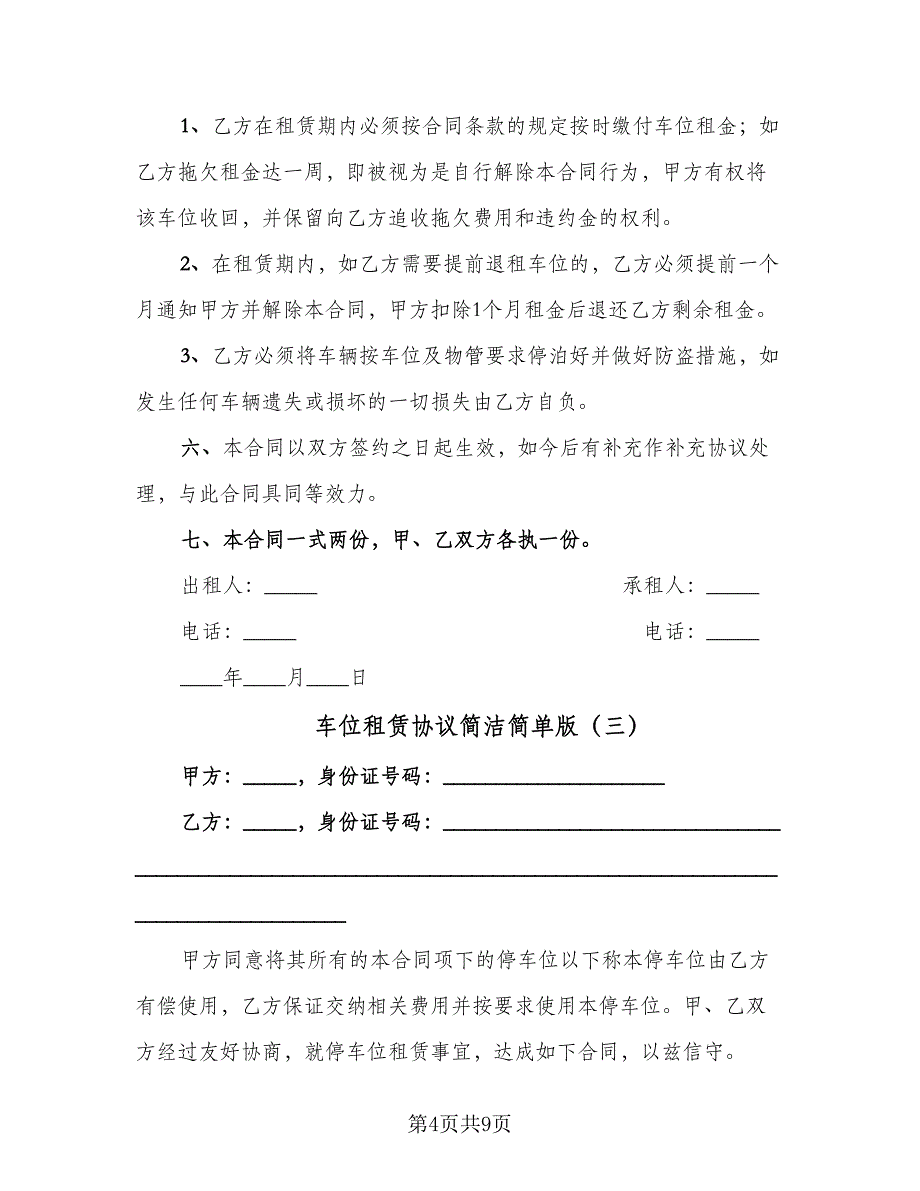 1、乙方在租赁期内必须按合同条款的规定按时缴付车位租金；如
乙方拖欠租金达一周，即被视为是自行解除本合同行为，甲方有权将
该车位收回，并保留向乙方追收拖欠费用和违约金的权利。
2、在租赁期内，如乙方需要提前退租车位的，乙方必须提前一个
月通知甲方并解除本合同，甲方扣除1个月租金后退还乙方剩余租金。
3、乙方必须将车辆按车位及物管要求停泊好并做好防盗措施，如
发生任何车辆遗失或损坏的一切损失由乙方自负。
六、本合同以双方签约之日起生效，如今后有补充作补充协议处
理，与此合同具同等效力。
七、本合同一式两份，甲、乙双方各执一份。
出租人：_____ 承租人：_____
电话：_____ 电话：_____
____年____月____日
车位租赁协议简洁简单版（三）
甲方：_____，身份证号码：_____________________
乙方：_____，身份证号码：________________________________
_____________________________________________________________
____________________
甲方同意将其所有的本合同项下的停车位以下称本停车位由乙方
有偿使用，乙方保证交纳相关费用并按要求使用本停车位。甲、乙双
方经过友好协商，就停车位租赁事宜，达成如下合同，以兹信守。
第4页共9页